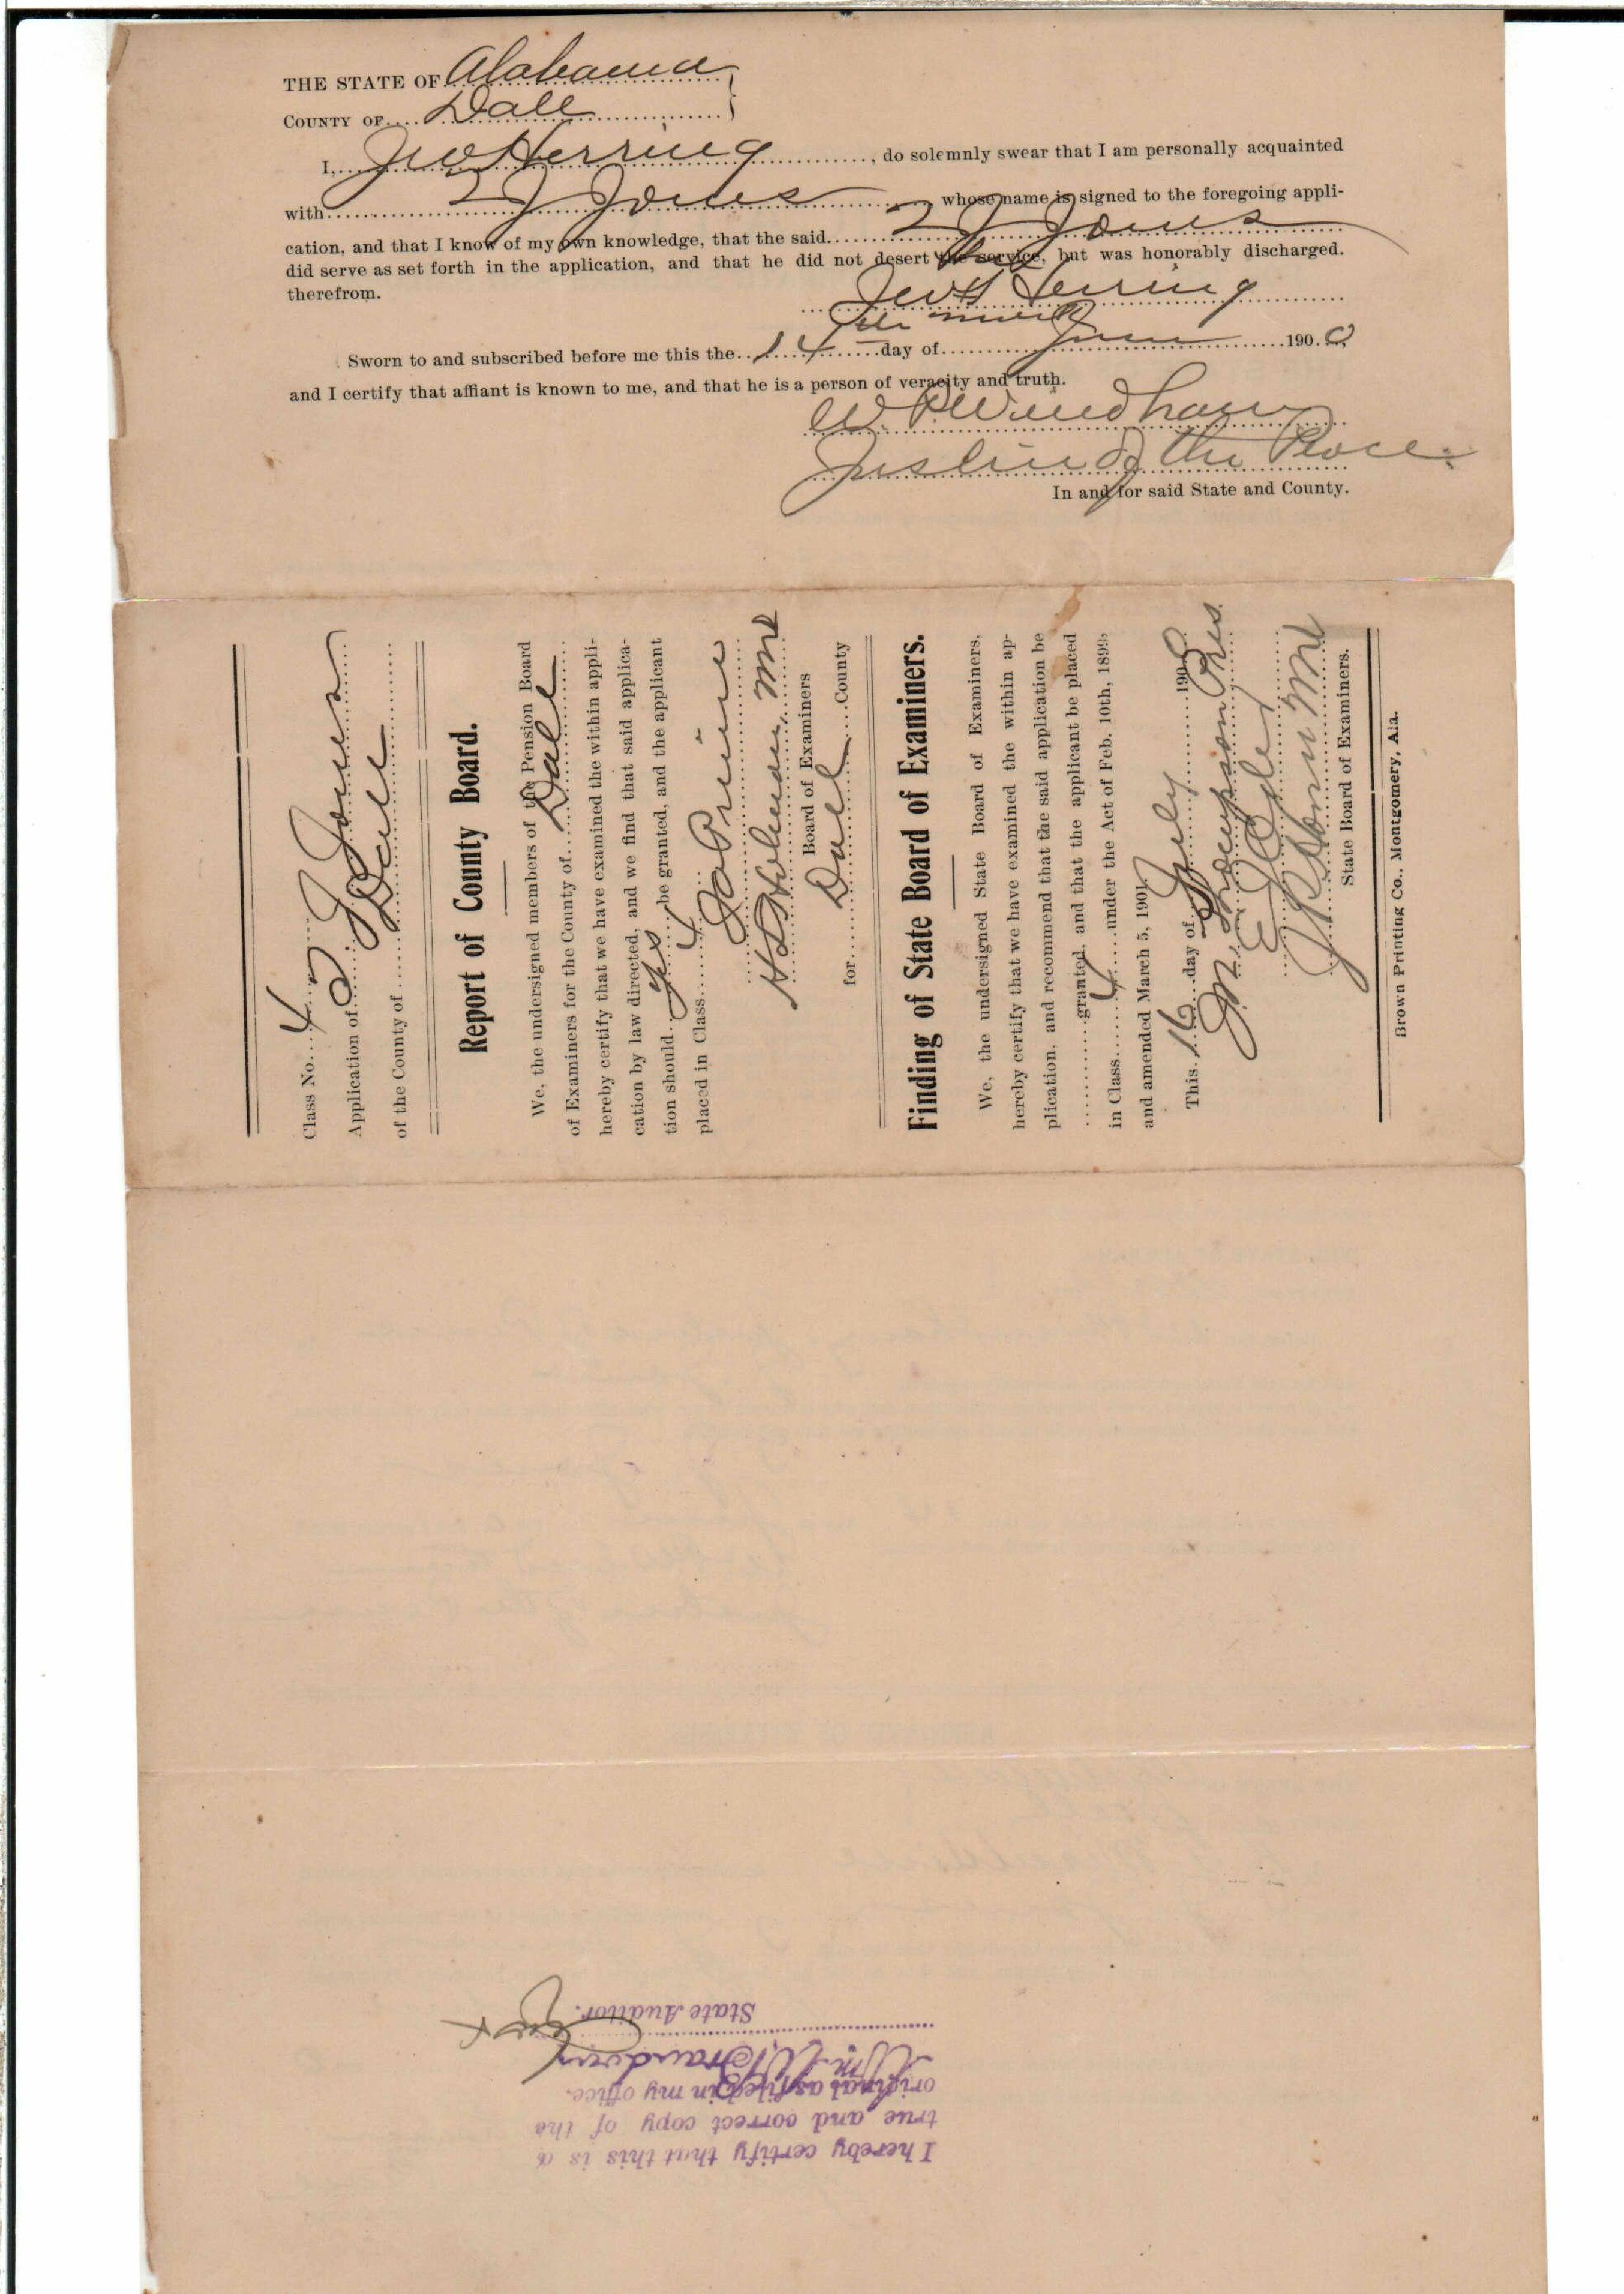 THE STATE OF Alabama
COUNTY OF Dale
I, Herring, do solemnly swear that I am personally acquainted
with J Jones whose name is signed to the foregoing appli-
cation, and that I know of my own knowledge, that the said J Jones
did serve as set forth in the application, and that he did not desert the service, but was honorably discharged.
therefrom.
Herring
mark
Sworn to and subscribed before me this the 14 day of June 1900
and I certify that affiant is known to me, and that he is a person of veracity and truth.
W. P. Windham
Justice of the Peace
In and for said State and County.
Class No. 4
Application of J Jones
of the County of Dale
Report of County Board.
We, the undersigned members of the Pension Board
of Examiners for the County of Dale
hereby certify that we have examined the within appli-
cation by law directed, and we find that said applica-
tion should yes be granted, and the applicant
placed in Class 4
Holman, MD
Board of Examiners
for Dale County
Finding of State Board of Examiners.
We, the undersigned State Board of Examiners,
hereby certify that we have examined the within ap-
plication, and recommend that the said application be
granted, and that the applicant be placed
in Class 4 under the Act of Feb. 10th, 1899,
and amended March 5, 1901.
This 16 day of July 190
Pres.
MD
State Board of Examiners.
Brown Printing Co., Montgomery, Ala.
I hereby certify that this is a
true and correct copy of the
original as filed in my office.
Wm. W. Brandon
State Auditor.